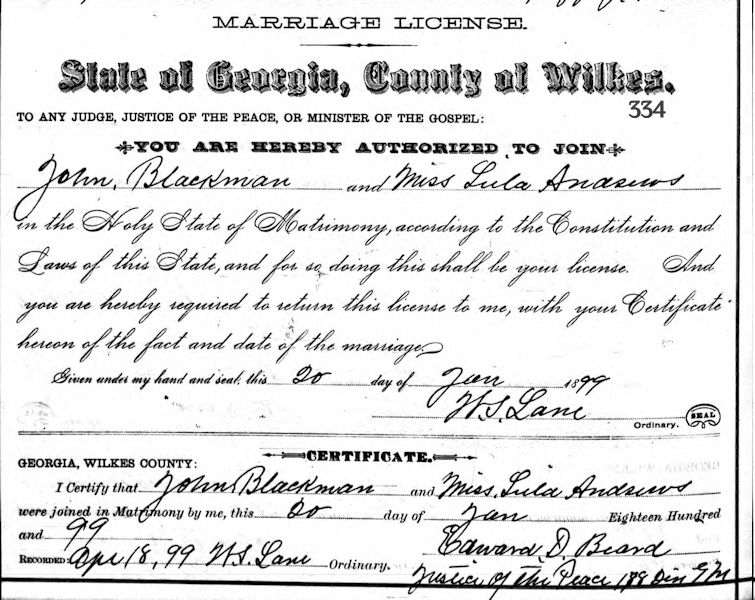 MARRIAGE LICENSE.
State of Georgia, County of Wilkes.
334
TO ANY JUDGE, JUSTICE OF THE PEACE, OR MINISTER OF THE GOSPEL:
YOU ARE HEREBY AUTHORIZED TO JOIN
John Blackman and Miss Lula Andrews
in the Holy State of Matrimony, according to the Constitution and
Laws of this State, and for so doing this shall be your license. And
you are hereby required to return this license to me, with your Certificate
hereon of the fact and date of the marriage.
Given under my hand and seal, this 20 day of Jan 1899
W.S. Lane
Ordinary. SEAL
CERTIFICATE.
GEORGIA, WILKES COUNTY:
I Certify that John Blackman and Miss Lula Andrews
were joined in Matrimony by me, this 20 day of Jan Eighteen Hundred
and 99 Edward D. Beard
RECORDED: Apr 18, 99 W.S. Lane Ordinary.
Justice of the Peace